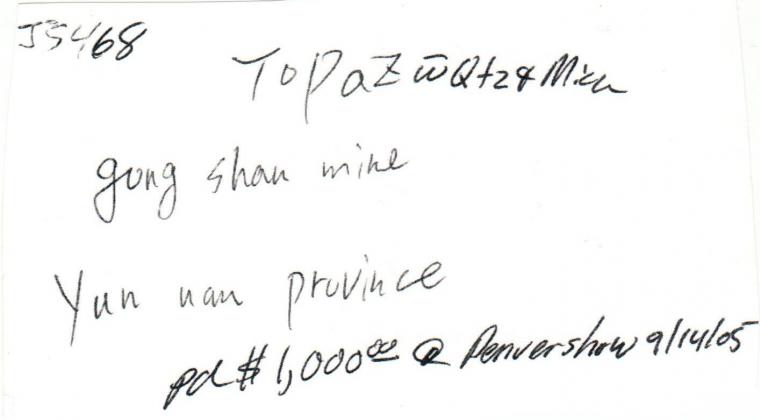 J5468
Topaz w̄ Qtz & Mica
gong shan mine
Yun nan province
pd $1,000.00 @ Denver show 9/14/05